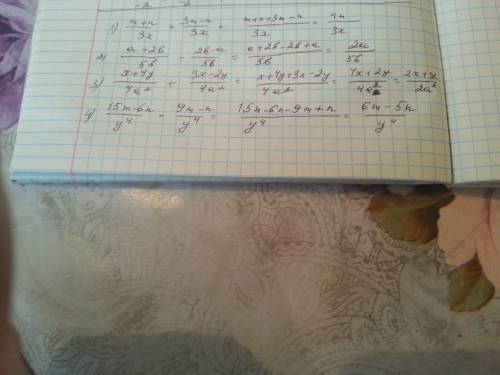 1) (m+n)/3x + (3m-n)/3x = (m+n+3m-n)/3x = 4m/3x
2) (a+2b)/5b - (2b-a)/5b = (a+2b-2b+a)/5b = 2a/5b
3) (x+4y)/4a² + (3x-2y)/4a² = (x+4y+3x-2y)/4a² = (4x+2y)/4a² = (2x+y)/2a²
4) (15m-6n)/y⁴ - (9m-n)/y⁴ = (15m-6n-9m+n)/y⁴ = (6m-5n)/y⁴